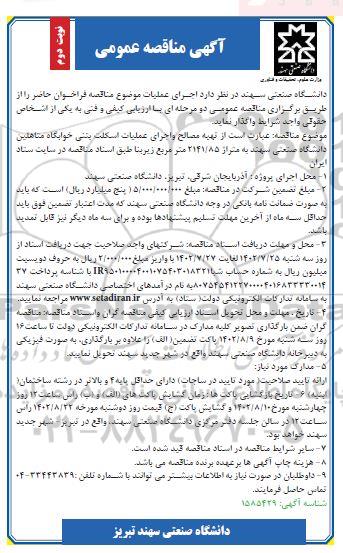 آگهی مناقصه عمومی
نوبت دوم
دانشگاه صنعتی سهند
وزارت علوم، تحقیقات و فناوری
دانشگاه صنعتی سهند در نظر دارد اجرای عملیات موضوع مناقصه فراخوان حاضر را از
طریق برگزاری مناقصه عمومی دو مرحله ای با ارزیابی کیفی و فنی به یکی از اشخاص
حقوقی واجد شرایط واگذار نماید.
موضوع مناقصه: عبارت است از تهیه مصالح واجرای عملیات اسکلت بتنی خوابگاه متاهلین
دانشگاه صنعتی سهند به متراژ ۲۱۴۱/۸۵ متر مربع زیربنا طبق اسناد مناقصه در سایت ستاد
ایران
۱- محل اجرای پروژه: آذربایجان شرقی، تبریز، دانشگاه صنعتی سهند
۲- مبلغ تضمین شرکت در مناقصه: مبلغ ۵/۰۰۰/۰۰۰/۰۰۰ (پنج میلیارد ریال) است که باید
به صورت ضمانت نامه بانکی در وجه دانشگاه صنعتی سهند که مدت اعتبار تضمین فوق باید
حداقل سه ماه از آخرین مهلت تسلیم پیشنهادها بوده و برای سه ماه دیگر نیز قابل تمدید
باشد.
۳- محل و مهلت دریافت اسناد مناقصه: شرکتهای واجد صلاحیت جهت دریافت اسناد از
روز سه شنبه ۱۴۰۲/۷/۲۵ لغایت ۱۴۰۲/۷/۲۷ با واریز مبلغ ۲/۰۰۰/۰۰۰ ریال به حروف دویست
میلیون ریال به شماره حساب شبا با شناسه پرداخت ۳۷
به نام درآمدهای اختصاصی دانشگاه صنعتی سهند
به سامانه تدارکات الکترونیکی دولت( ستاد) به آدرس www.setadiran.ir مراجعه نمایید.
۴- تاریخ، مهلت و محل تحویل اسناد ارزیابی کیفی مناقصه گران واسناد مناقصه: مناقصه
گران ضمن بارگذاری تصویر کلیه مدارک در سامانه تدارکات الکترونیکی دولت تا ساعت۱۶
روز سه شنبه مورخ ۱۴۰۲/۸/۹ پاکت تضمین( الف) را علاوه بر بارگذاری، به صورت فیزیکی
به دبیرخانه دانشگاه صنعتی سهند واقع در شهر جدید سهند تحویل نمایند.
۵- مدارک مورد نیاز:
ارائه تایید صلاحیت( مورد تایید در ساجات) دارای حداقل پایه۴ و بالاتر در رشته ساختمان(
ابنیه) ۶- تاریخ بازگشایی پاکت ها: زمان گشایش پاکت های (الف) و (ب) راس ساعت ۱۲ روز
چهارشنبه مورخ۱۴۰۲/۸/۱۰ و گشایش پاکت (ج) قیمت روز دوشنبه مورخه ۱۴۰۲/۸/۲۲ راس
ساعت۱۲ در سالن جلسه دفتر مرکزی دانشگاه صنعتی سهند، واقع در تبریز- شهر جدید
سهند خواهد بود.
۷- سایر شرایط مناقصه در اسناد مناقصه قید شده است.
۸- هزینه چاپ آگهی ها برعهده برنده مناقصه می باشد.
۹- داوطلبان در صورت نیاز به اطلاعات بیشتر می توانند با شماره تلفن :۳۳۴۴۳۸۳۹-۰۴
تماس حاصل فرمایند.
شناسه آگهی: ۱۵۸۵۴۲۹
دانشگاه صنعتی سهند تبریز